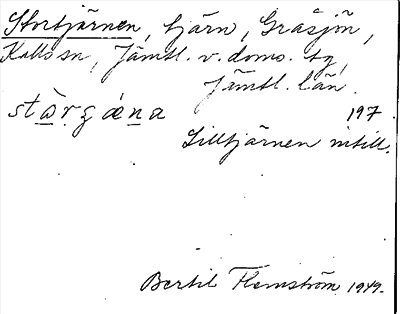 Stortjärnen, tjärn, Gråsjön,
Kalls sn, Jämtl. v. doms. tg,
Jämtl. län.
stàrgǽna 197
Lilltjärnen intill.
Bertil Flemström 1949.